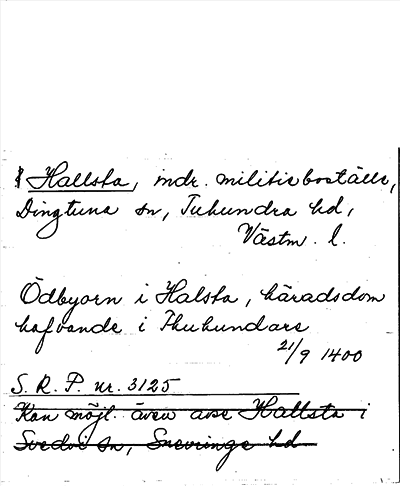 Hallsta, indr. militieboställe,
Dingtuna sn, Tuhundra hd,
Västm. l.
Ödbyorn i Halsta, häradsdom
hafvande i Thuhundare
21/9 1400
S. R. P. nr. 3125
Kan möjl. även avse Hallsta i
Svedvi sn, Snevringe hd